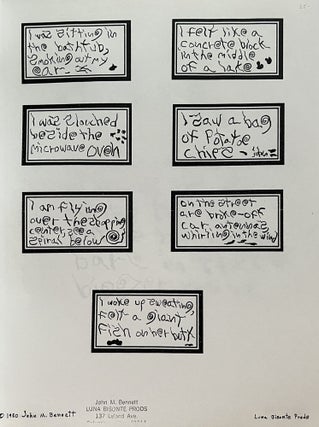 I was sitting in
the bathtub,
smoking out my
ear
I felt like a
concrete block
in the middle
of a lake
I was slouched
beside the
microwave oven
I saw a bag
of Potatoe
chips
I am flying
over the shopping
center, see a
spiral below
on the street
are broke-off
car antennas
whirling in the wind
I woke up sweating,
felt a giant
fish on her butt
© 1980 John M. Bennett
John M. Bennett
LUNA BISONTE PRODS
137 Leland Ave.
Luna Bisonte Prods